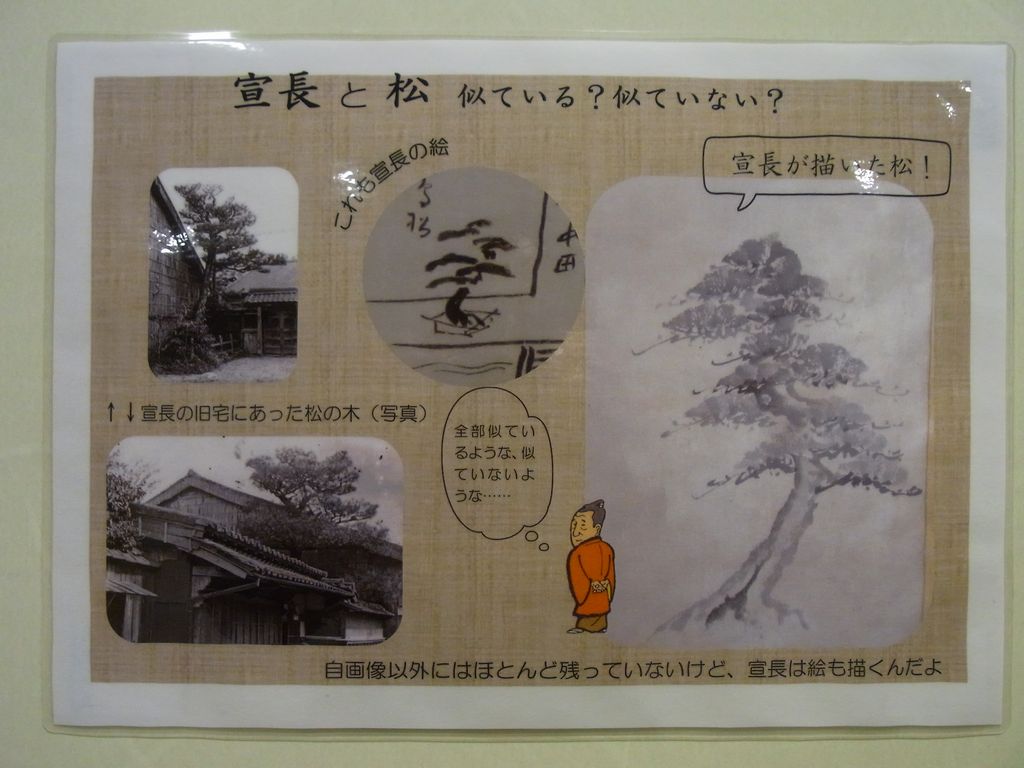 宣長と松 似ている？似ていない？
これも宣長の絵
宣長が描いた松！
本田
↑↓宣長の旧宅にあった松の木（写真）
全部似てい
るような、似
ていないよ
うな……
自画像以外にはほとんど残っていないけど、宣長は絵も描くんだよ